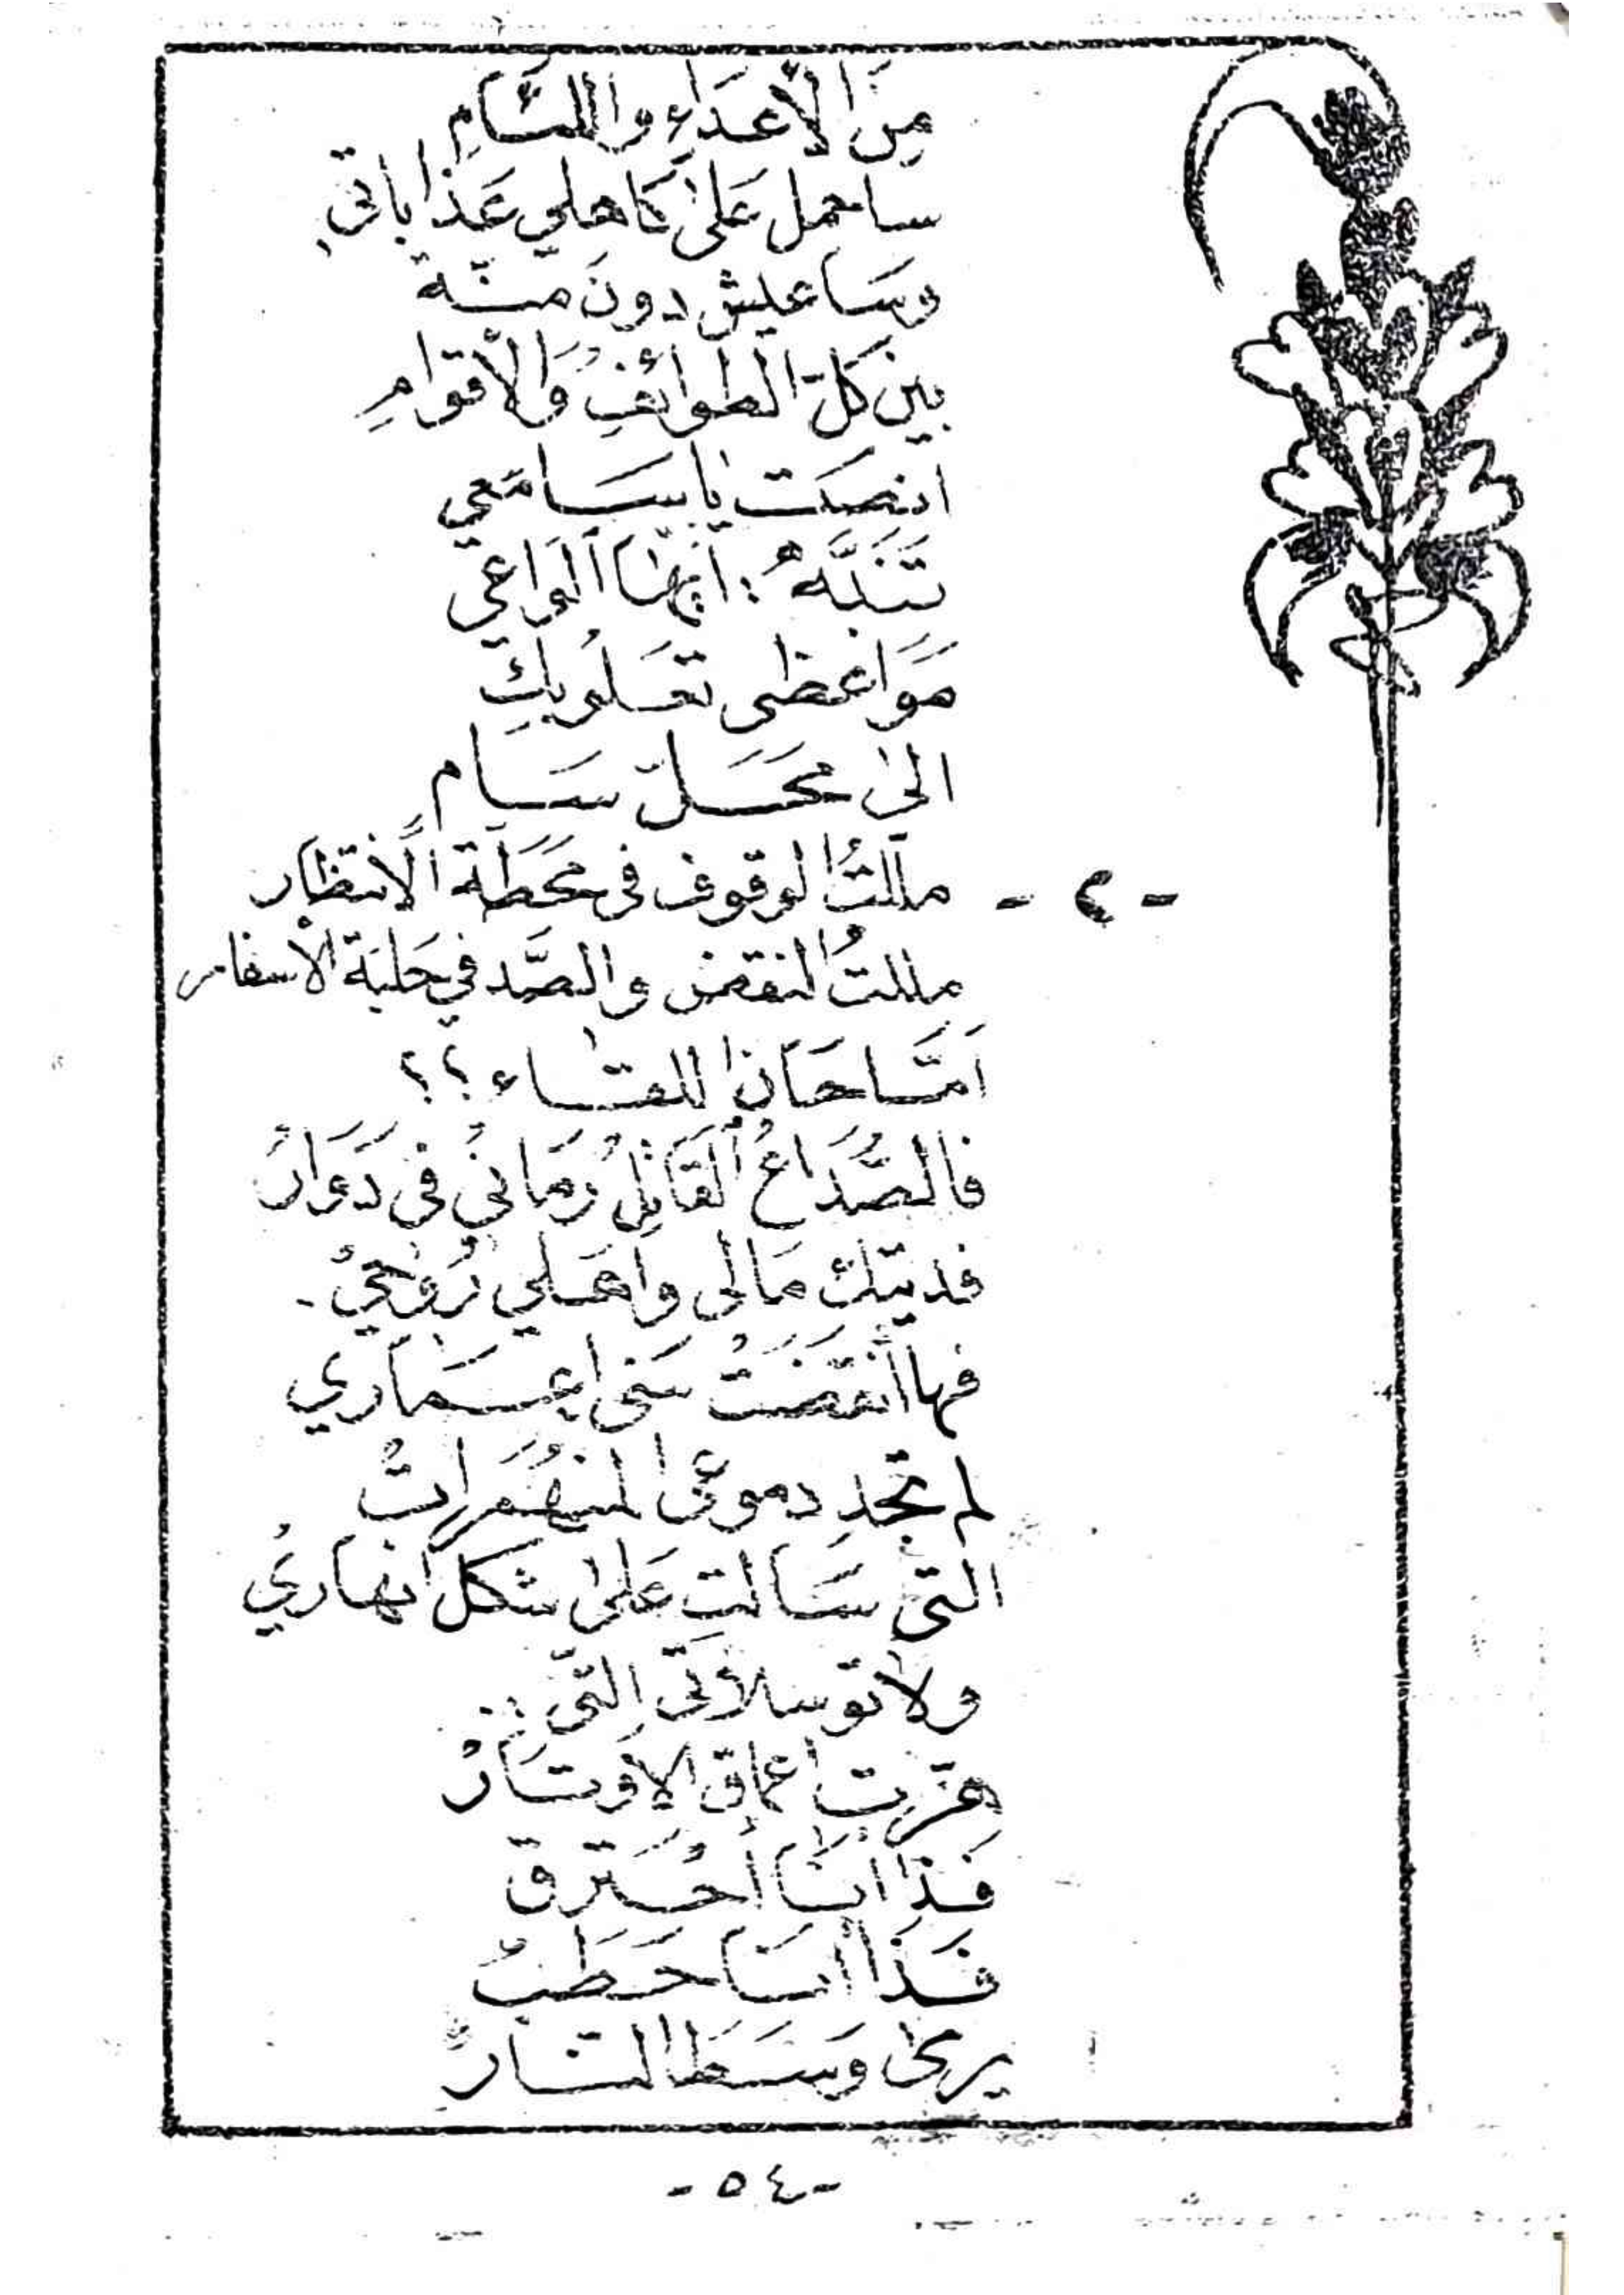 مِنَ الأعدَاءِ واللئَامِ
سأحمل عَلىٰ كَاهلي عَذاباتي
وسَاعيش دونَ منّةٌ
بين كلّ الطوائفِ وَالأقوامِ
انصت يٰا سَامعي
تَنَبَّهْ : أيّهٰا الوَاعي
مَوَاعظى تعَلو بِكَ
الىٰ محَلّ سَام
- ٢ - مللتُ الوقوف في محَطّة الانتظار
مللتُ النقض والصَّد في حَلبَة الأسفار
أمَّا حَان اللقاء ؟؟
فالصُّدَاعُ القَاتِلُ رَمَاني في دَوَار
فديتك مَالى واهَلي رُوحيْ .
فها انقَضَتْ سَنى اعمَاري
لم تجدِ دموعىَ المنهَمِرَات
التي سَالتِ عَلىٰ شكل انهاريْ
ولا توسلاتى التّي ..
هزّت اعماق الأوتَارْ
فَذا انَا أحْتَرق
فَذا انَا حَطَبٌ
يرمى وَسَط النّار
- ٥٤ -